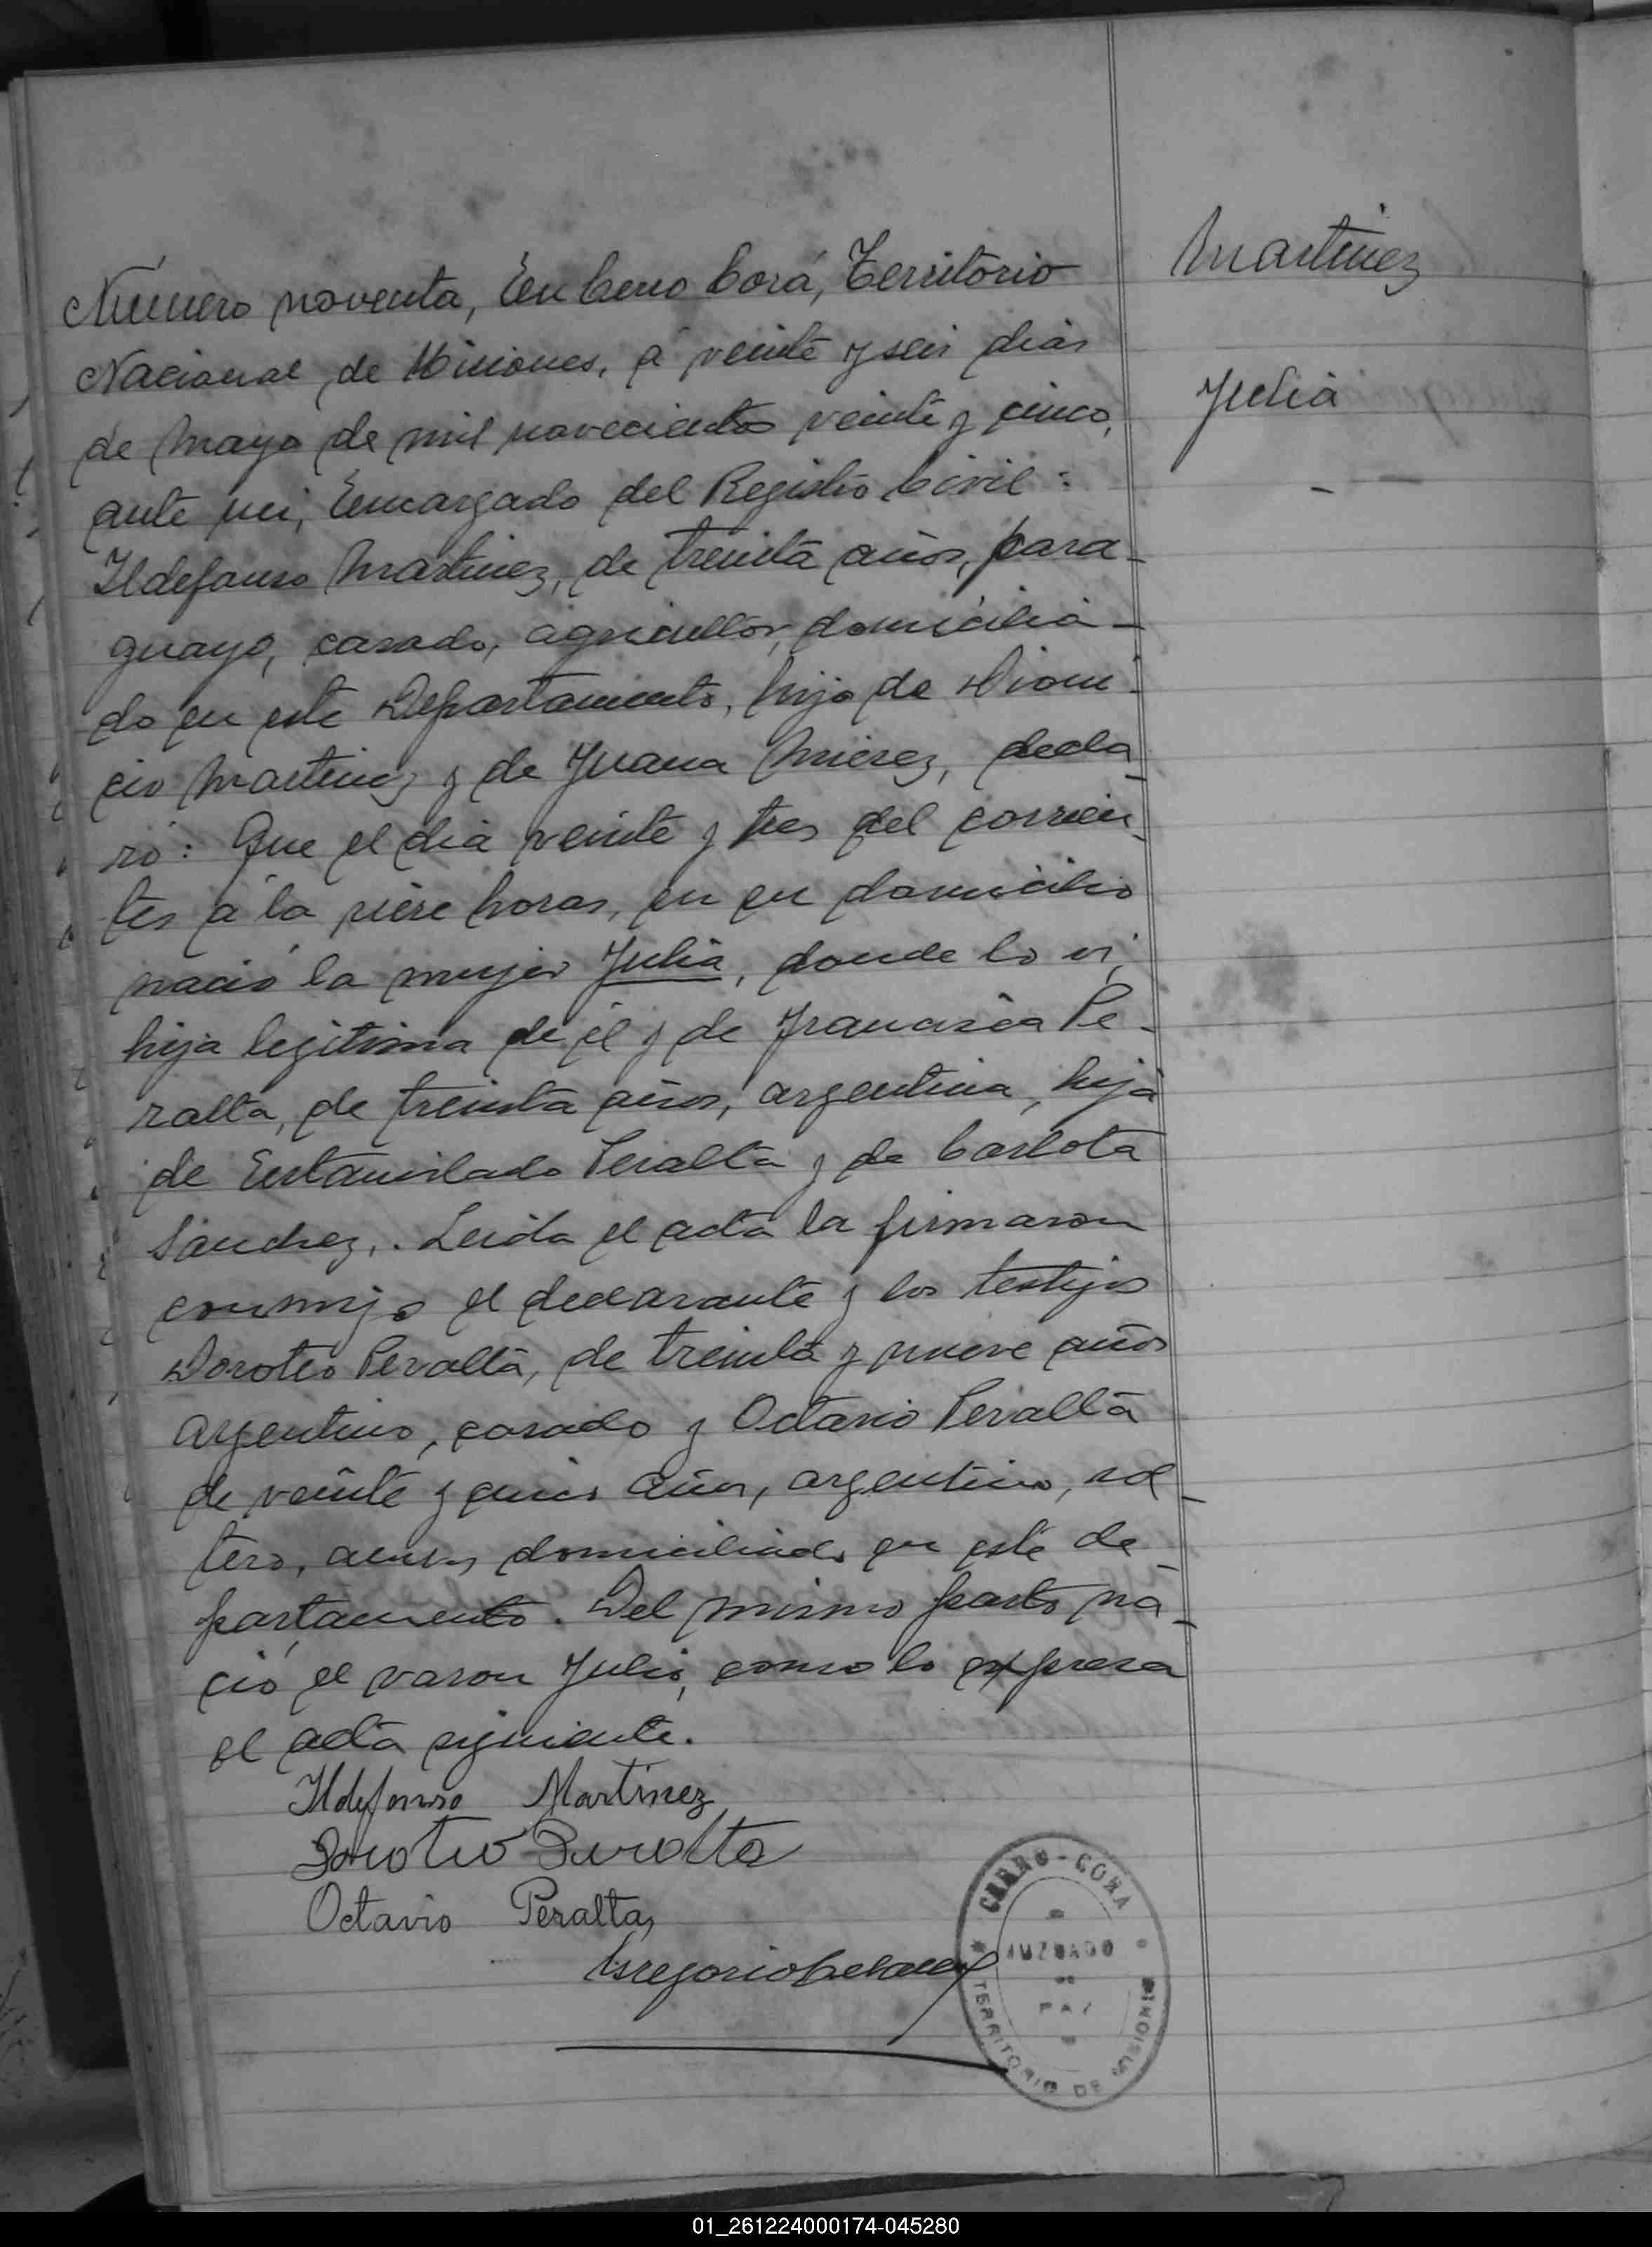 Número noventa, En Cerro Corá, Territorio
Martinez
Nacional de Misiones, á veinte y seis dias
Julia
de Mayo de mil novecientos veinte y cinco,
ante mi, Encargado del Registro Civil:
Ildefonso Martinez, de treinta años, para-
guayo, casado, agricultor, domicilia-
do en este Departamento, hijo de Dioni-
cio Martinez y de Juana Mierez, decla-
ró: Que el dia veinte y tres del corrien-
tes á la siete horas, en su domicilio
nació la mujer Julia, donde lo vi,
hija legitima de él y de Francisca Pe-
ralta, de treinta años, argentina, hija
de Estanislado Peralta y de Carlota
Sanchez,. Leida el acta la firmaron
conmigo el declarante y los testigos
Doroteo Peralta, de treinta y nueve años
argentino, casado y Octavio Peralta
de veinte y cinco años, argentino, sol-
tero, domiciliado en este de-
partamento. Del mismo parto na-
ció el varon Julio, como lo expresa
el acta siguiente.
Ildefonso Martinez
Doroteo Peralta
Octavio Peralta
Gregorio
CERRO-CORA
JUZGADO
DE
PAZ
TERRITORIO DE MISIONES
01_261224000174-045280